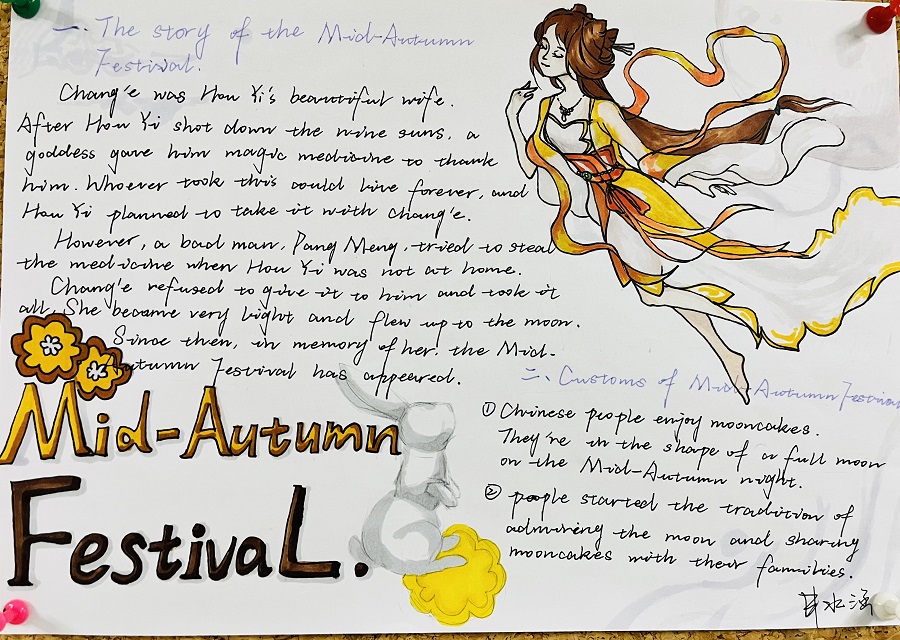 一. The story of the Mid-Autumn
Festival.
Chang'e was Hou Yi's beautiful wife.
After Hou Yi shot down the nine suns, a
goddess gave him magic medicine to thank
him. Whoever took this could live forever, and
Hou Yi planned to take it with Chang'e.
However, a bad man, Pang Meng, tried to steal
the medicine when Hou Yi was not at home.
Chang'e refused to give it to him and took it
all. She became very light and flew up to the moon.
Since then, in memory of her, the Mid-
Autumn Festival has appeared.
Mid-Autumn
Festival.
二、Customs of Mid-Autumn Festival
① Chinese people enjoy mooncakes.
They're in the shape of a full moon
on the Mid-Autumn night.
② people started the tradition of
admiring the moon and sharing
mooncakes with their families.
水涵